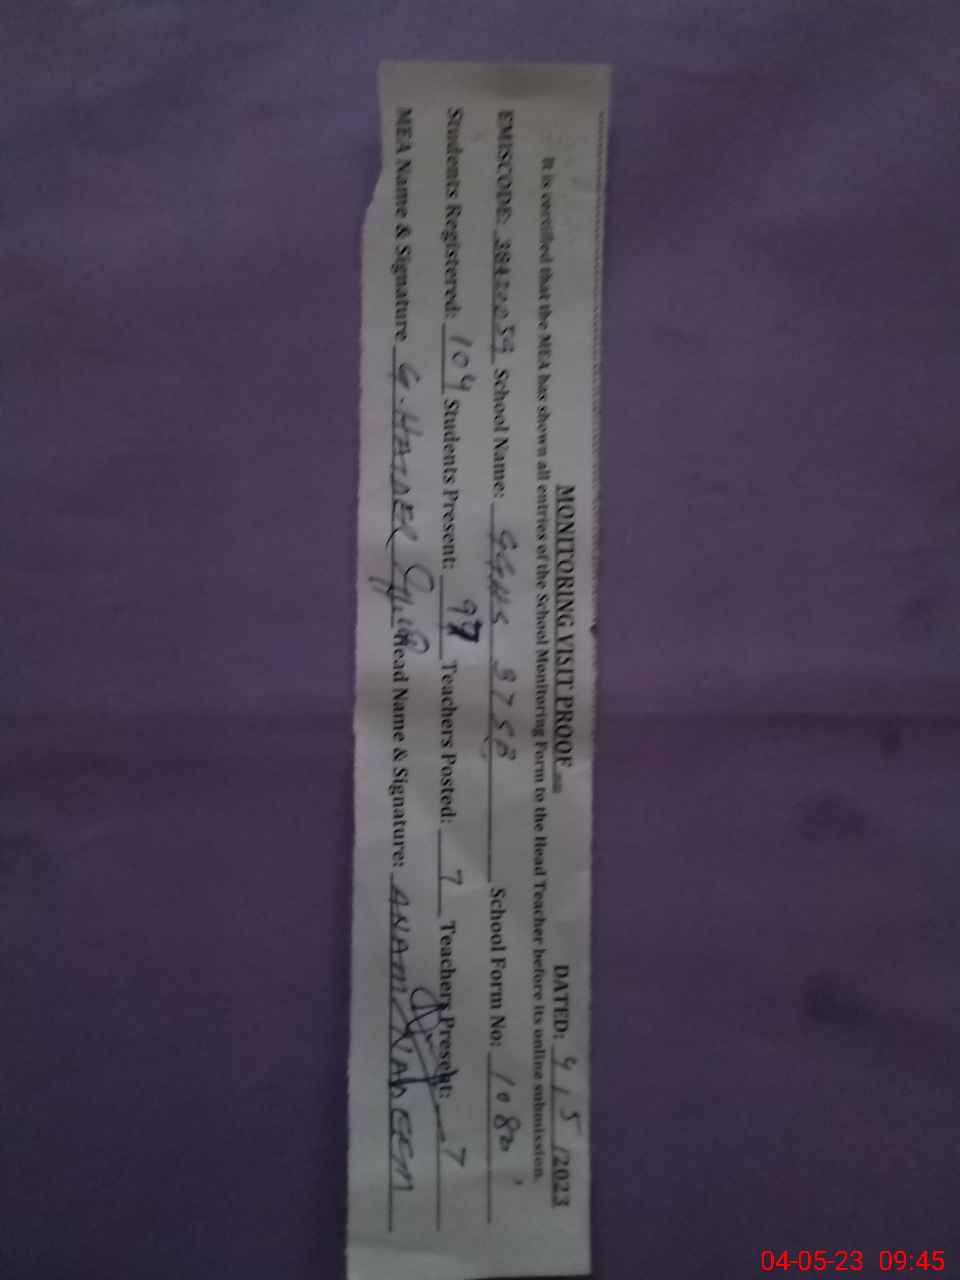 MONITORING VISIT PROOF DATED: 4 / 5 /2023
It is certified that the MEA has shown all entries of the School Monitoring Form to the Head Teacher before its online submission.
EMISCODE: 38420059 School Name: GGHS 37SB School Form No: 1080
Students Registered: 104 Students Present: 97 Teachers Posted: 7 Teachers Present: 7
MEA Name & Signature G. HAIDER Head Name & Signature: ANAM
04-05-23 09:45